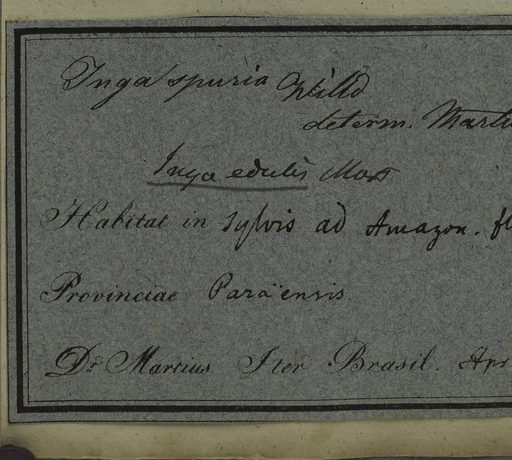 Inga spuria Willd
determ. Martiu
Inga edulis Mart
Habitat in sylvis ad Amazon. fl
Provinciae Paraënsis
Dr. Martius Iter Brasil. Apr